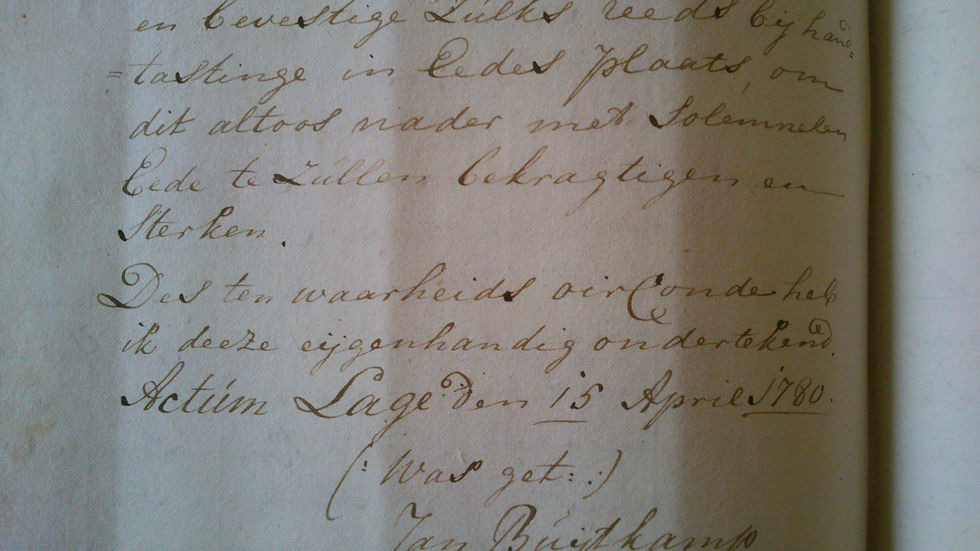 en bevestige zúlks reeds bij hand=
=tastinge in Eedes plaats, om
dit altoos nader met Solemneelen
Eede te zúllen bekragtigen en
Sterken.
Des ten waarheids oirconde heb
ik deeze eijgenhandig ondertekend.
Actúm Lage den 15 April 1780.
(: Was get: :)
Jan Búijtkamp